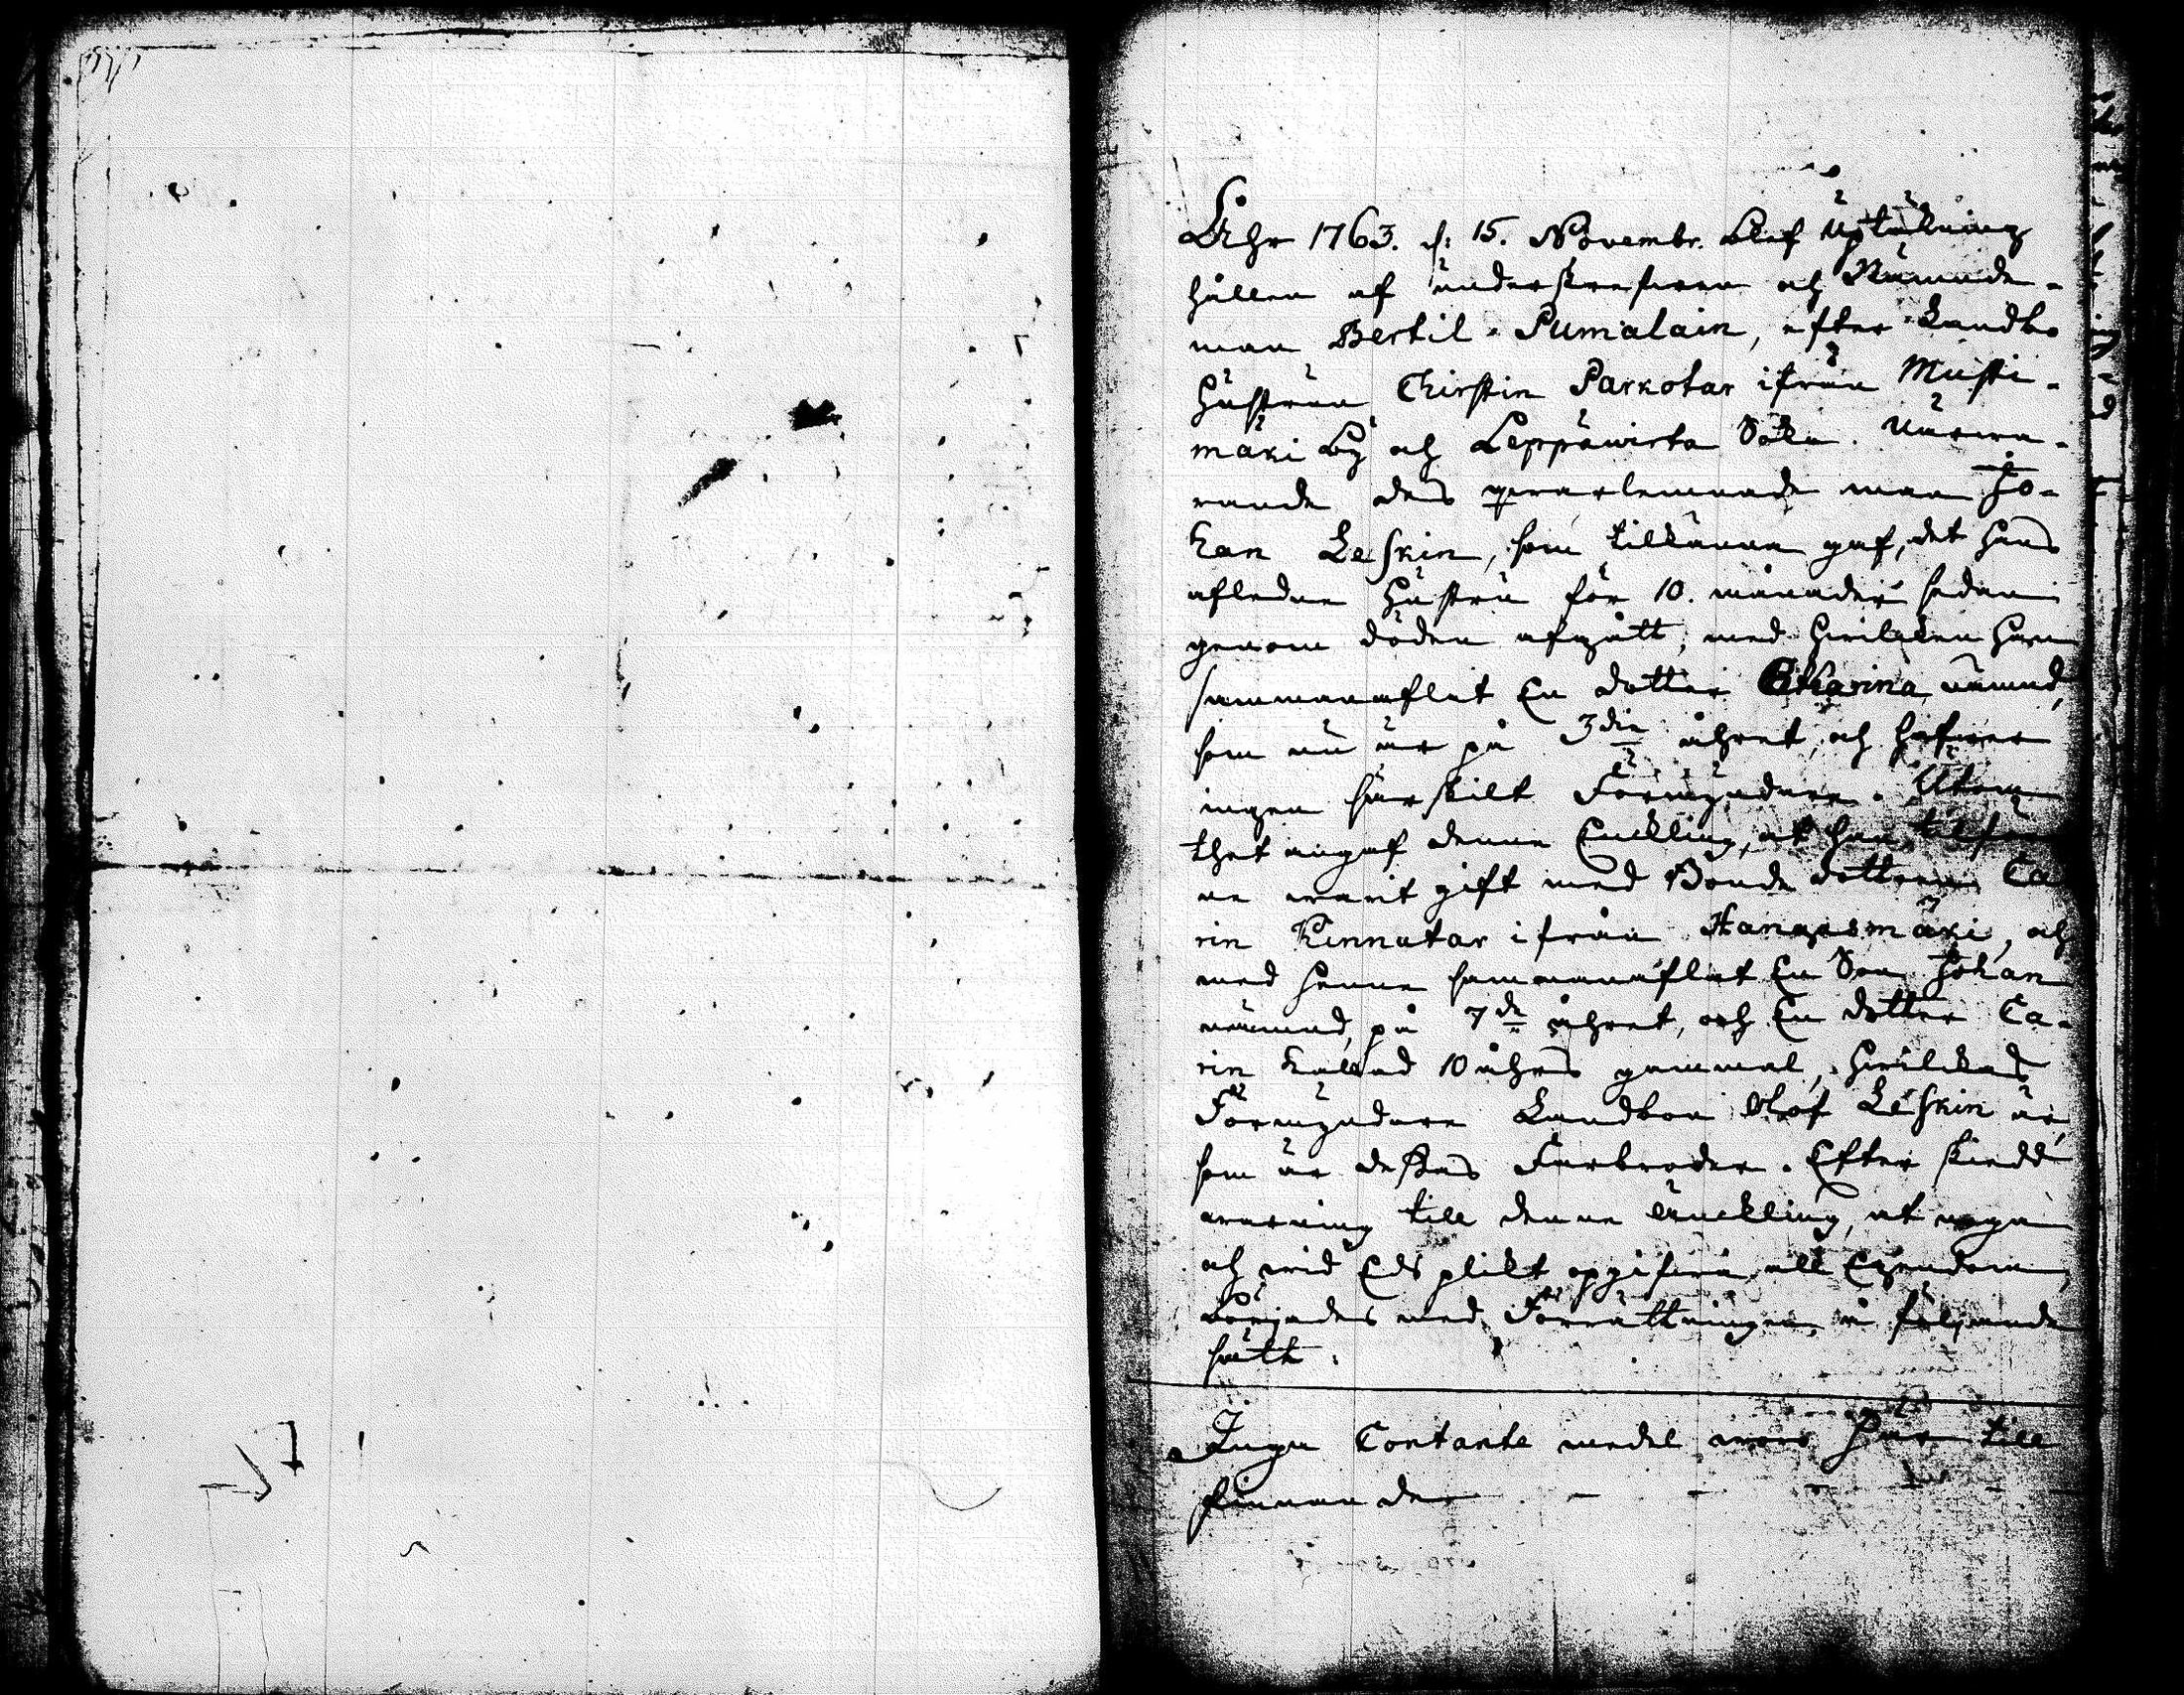 Åhr 1763. d: 15. Novembr. blef Upteckning
hållen af underskrefven och Nämnde-
man Bertil Pumalain, efter Landbo
hustrun Chirstin Parkotar ifrån Musti-
mäki By och Leppäwirta Sokn. Närwa-
rande des qvarlemnade man Jo-
han Leskin, som tillkänna gaf, det hans
aflednе hustru för 10. månader sedan
genom döden afgått, med hvilcken han
sammanaflat En dotter Catharina nämnd,
som nu är på 3die åhret, och hafver
ingen särskilt Förmyndare. Utom
thet angaf denne Enckling, at han tilfor
ne warit gift med Bonde dottren Ca
rin Kinnutar ifrån Hangasmäki, och
med henne sammanaflat En Son Johan
nämnd, på 7de åhret, och En dotter Ca-
rin kallad 10 åhrs gammal, hvilckas
Förmyndare Landbon Olof Leskin är,
som är dessas Farbroder. Efter skiedd
warning till denne änckling, at
och wid Eds plikt opgifva all Egendom,
börjades med Förrättningen å följande
sätt.
Inga Contante medel woro här till
finnandes - - - -